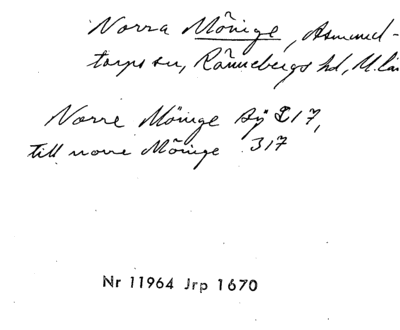 Norra Mönige, Asmund-
torps sn, Rönnebergs hd, M. län
Norre Mönige By 317,
till norre Mönige 317
Nr 11964 Jrp 1670